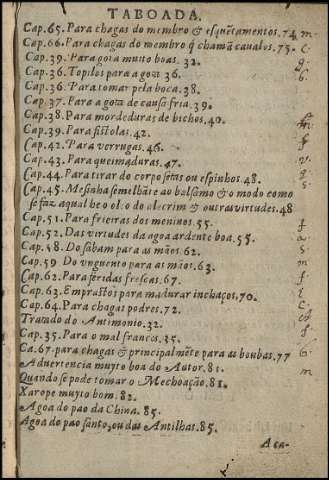 TABOADA.
Cap. 65. Para chagas do membro & esquẽtamentos. 74 m.
Cap. 66. Para chagas do membro q̃ chamã caualos. 75. C.
Cap. 39. Para gota muito boas. 32. g.
Cap. 36. Topicos para a gota 36.
Cap. 36. Para tomar pela boca. 38.
Cap. 37. Para a gota de causa fria. 39.
Cap. 38. Para mordeduras de bichos. 40.
Cap. 39. Para fistolas. 42. f
Cap. 42. Para verrugas. 46. v.
Cap. 43. Para queimaduras. 47. q
Cap. 44. Para tirar do corpo setas ou espinhos. 48. s.
Cap. 45. Mesinha semelhãte ao balsamo & o modo como
se faz aqual he o oleo de alecrim & outras virtudes. 48
Cap. 51. Para frieiras dos meninos. 55. f
Cap. 52. Das virtudes da agoa ardente boa. 55. a
Cap. 58. Do sabam para as mãos. 62. s
Cap. 59 Do vnguento para as mãos. 63. m
Cap. 62. Para feridas frescas. 67. f
Cap. 63. Emprastos para madurar inchaços, 70.
Cap. 64. Para chagas podres. 72. C
Tratado do Antimonio. 32.
Cap. 35. Para o mal frances. 35. f
Ca. 67. para chagas & principalmẽte para as boubas. 77 b.
Aduertencia muyto boa do Autor. 81. m
Quando se pode tomar o Mechoação. 81.
Xarope muyto bom. 82.
Agoa do pao da China. 85.
Agoa do pao santo, ou das Antilhas. 85.